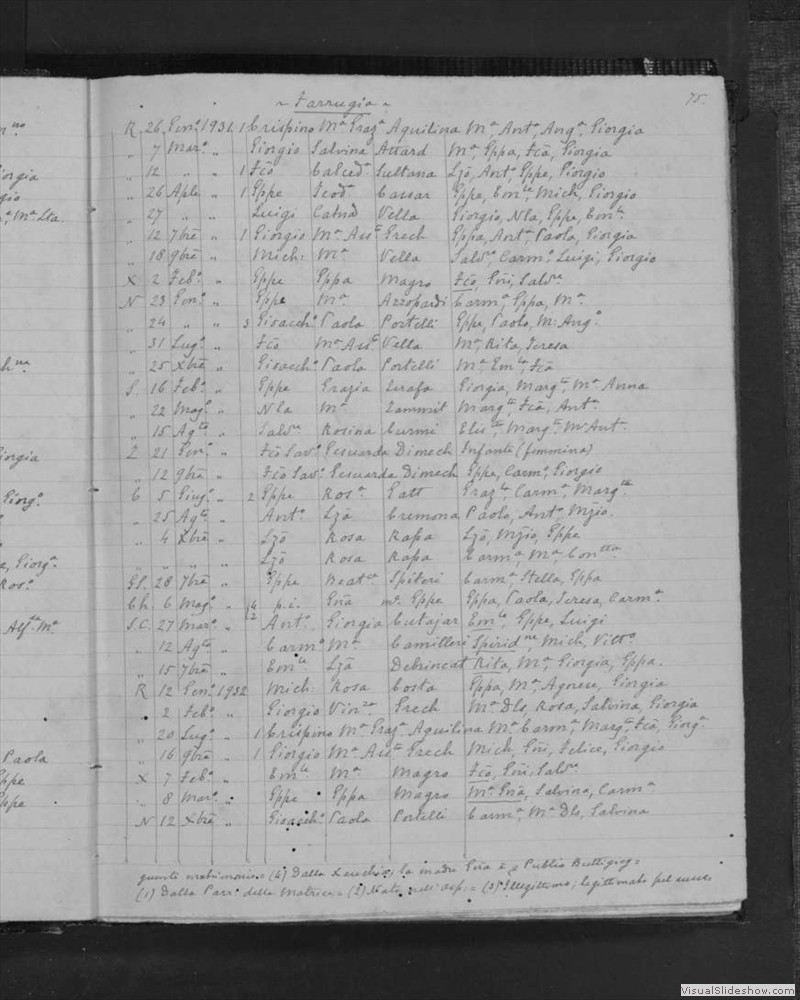 ~ Farrugia ~ 75.
R 26 Genº 1931 1 Crispino Mª Grazª Aquilina Mª, Antª, Angª, Giorgia
„ 7 Marº „ Giorgio Salvina Attard Mª, Gppa, Fcā, Giorgia
„ 12 „ „ 1 Fcō Calcedª Sultana Lzō, Antº, Gppe, Giorgio
„ 26 Aple „ 1 Gppe Teodª Caesar Gppe, Emle, Mich, Giorgio
„ 27 „ „ Luigi Catnā Vella Giorgio, Nla, Gppe, Emle
„ 12 7brē „ 1 Giorgio Mª Assª Grech Gppa, Antª, Paola, Giorgia
„ 18 9brē „ Mich: Mª Vella Salvre, Carmº, Luigi, Giorgio
X 2 Febº „ Gppe Gppa Magro Fcō, Gñi, Salvre
N 23 Genº „ Gppe Mª Azzopardi Carmª, Gppa, Mª
„ 24 „ „ 3 Gioacchº Paola Portelli Gppe, Paolo, M: Angº
„ 31 Lugº „ Fcō Mª Assª Vella Mª, Rita, Teresa
„ 25 Xbrē „ Gioacchº Paola Portelli Mª, Emla, Fcā
S. 16 Febº „ Gppe Grazia Zerafa Giorgia, Margta, Mª Anna
„ 22 Magº „ Nla Mª Zammit Margta, Fcā, Antª
„ 15 Agto „ Salvre Rosina Curmi Elista, Margta, Mª Antª
Z 21 Genº „ Fcō Savº Gesuarda Dimech Infante (femmina)
„ 12 9brē „ Fcō Savº Gesuarda Dimech Gppe, Carmº, Giorgio
G 5 Giugº „ 2 Gppe Rosª Gatt Grazla, Carmª, Margta
„ 25 Agto „ Antº Lzā Cremona Paolo, Antº, Mzio.
„ 4 Xbrē „ Lzō Rosa Rapa Lzō, Mzio, Gppe
„ „ „ „ Lzō Rosa Rapa Carmª, Mª, Contta
GL. 28 7brē „ Gppe Beatce Spiteri Carmª, Stella, Gppa
Gh. 6 Magº „ 4 p.i. Gñā mº Gppe Gppa, Paola, Teresa, Carmª
S.C. 27 Marº „ 2 Antº Giorgia Cutajar Emle, Gppe, Luigi
„ 12 Agto „ Carmº Mª Camilleri Spiridne, Mich, Vittº
„ 15 7brē „ Emle Lzā Debrincat Rita, Mª, Giorgia, Gppa.
R 12 Genº 1932 Mich: Rosa Costa Gppa, Mª, Agnese, Giorgia
„ 2 Febº „ Giorgio Vinza Grech Mª Dls, Rosa, Salvina, Giorgia
„ 20 Lugº „ 1 Crispino Mª Grazª Aquilina Mª Carmª, Margta, Fcā, Giorgª
„ 16 9brē „ 1 Giorgio Mª Assª Grech Mich, Gñi, Felice, Giorgio
X 7 Febº „ Emle Mª Magro Fcō, Gñi, Salvre
„ 8 Marº „ Gppe Gppa Magro Mª Gñā, Salvina, Carmª
N 12 Xbrē „ Gioacchº Paola Portelli Carmª, Mª Dls, Salvina
matrimonio = (4) Dalla la madre Gñā è Publio Buttigieg =
(1) Dalla Parr. della Matrice = (2) Nato nell' osp. = (3) Illegittimo; legittimato pel
orgia
gio
a, Mª Lta.
orgia
Giorgº
e, Giorgª
Rosº
Alfsa Mª
Paola
ppe
ppe
VisualSlideshow.com